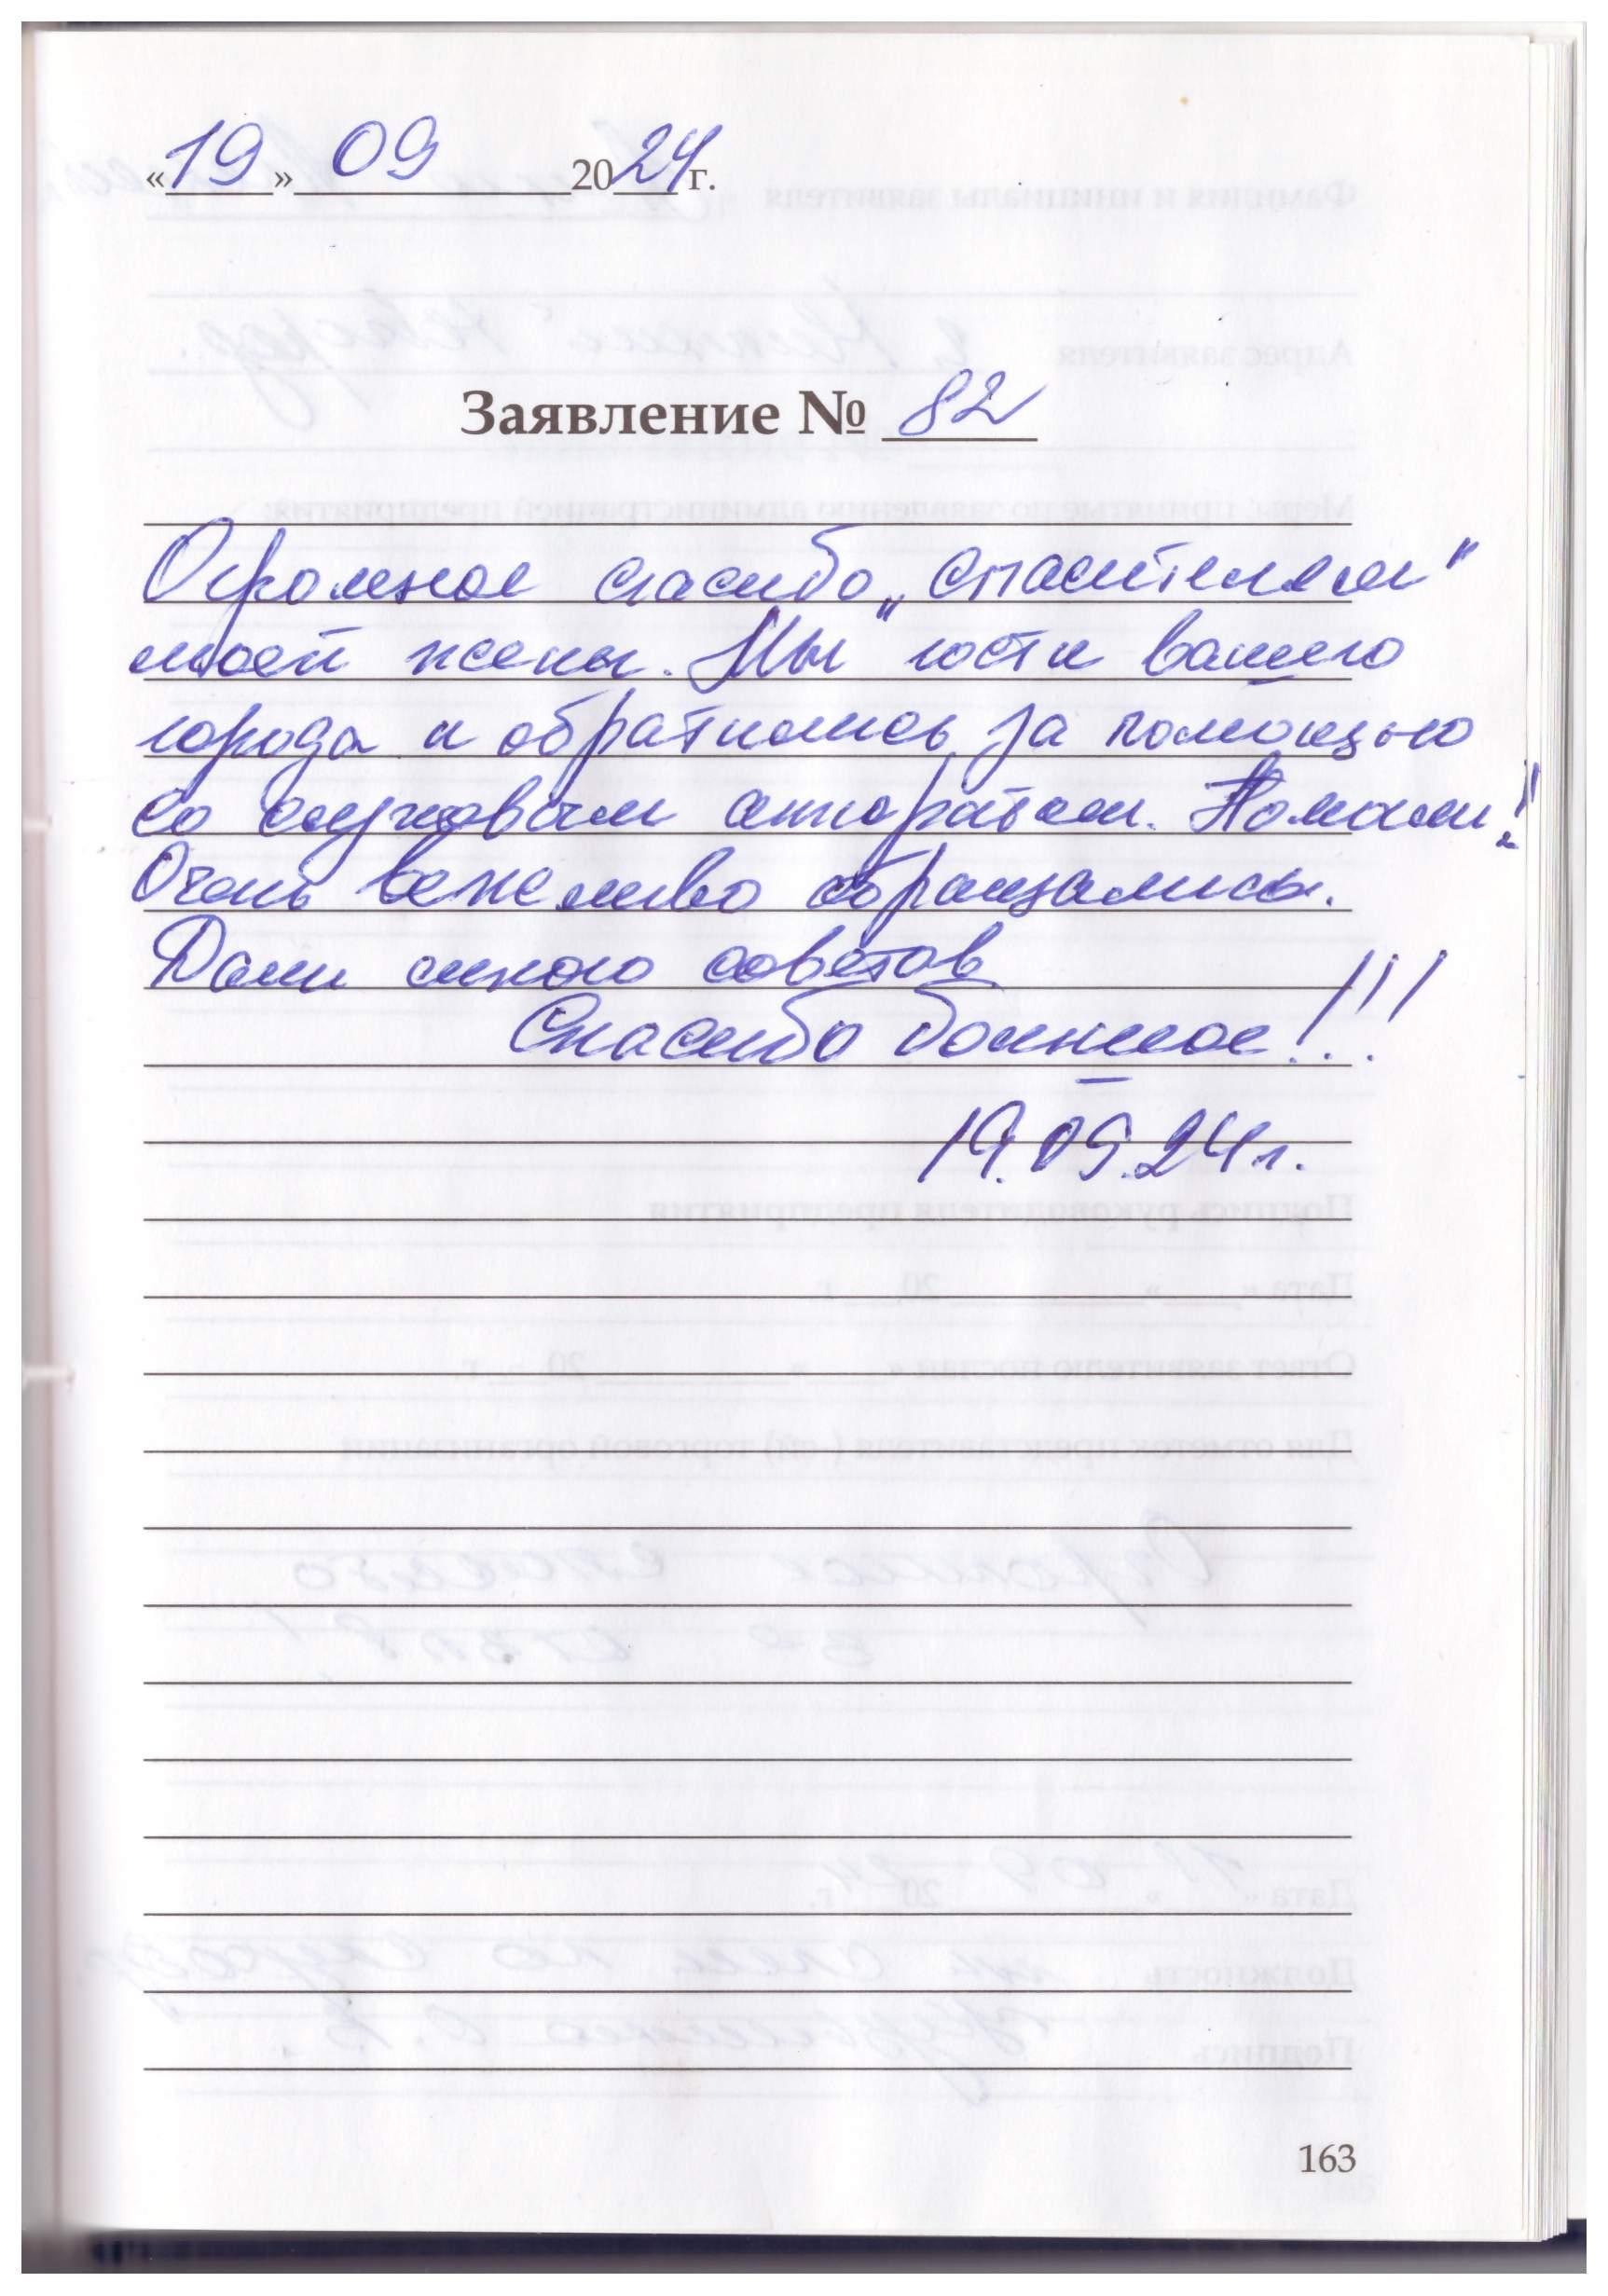 «19» 09 2024 г.
Заявление № 82
Огромное спасибо „спасителям"
моей жены. Мы гости вашего
города и обратились за помощью
со слуховым аппаратом. Помогли!!
Очень вежливо обращались.
Дали много советов
Спасибо большое!!!
19.09.24 г.
163